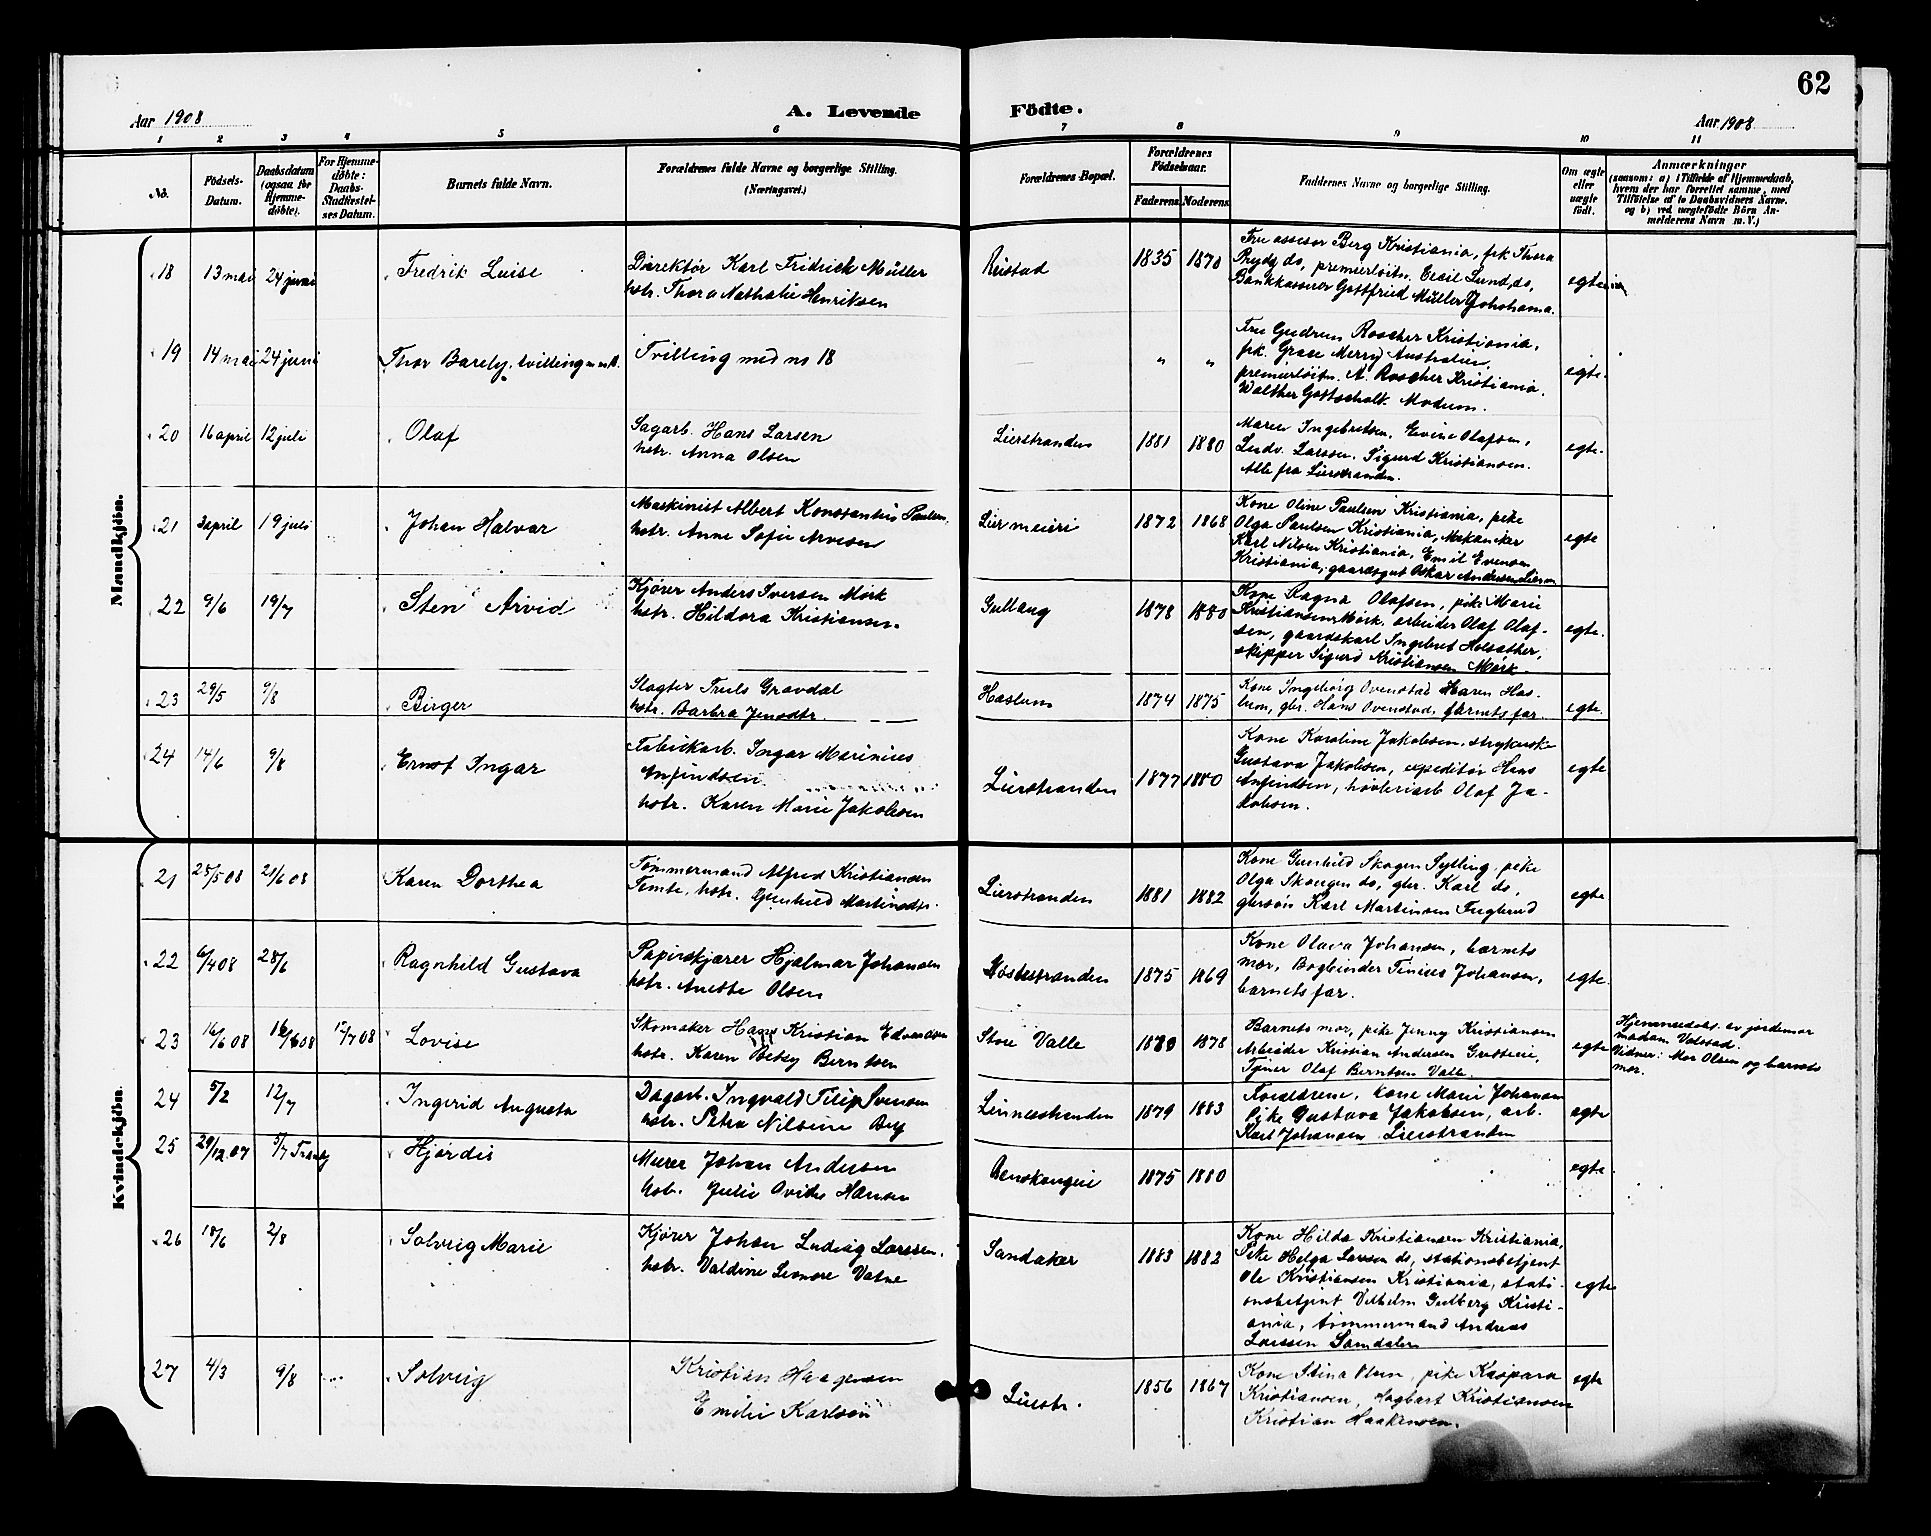 62
Aar 1908
A. Levende
Födte.
Aar 1908
1 2 3 4 5 6 7 8 9 10 11
No.
Födsels-
Datum.
Daabsdatum
(ogsaa for
Hjemme-
döbte).
For Hjemme-
döbte:
Daabs-
Stadfestel-
ses Datum.
Barnets fulde Navn.
Forældrenes fulde Navne og borgerlige Stilling.
(Næringsvei.)
Forældrenes Bopæl.
Forældrenes
Födselsaar.
Faderens
Moderens
Faddernes Navne og borgerlige Stilling.
Om ægte
eller
uægte
födt.
Anmærkninger
(saasom: a) i Tilfælde af Hjemmedaab,
hvem der har forrettet samme, med
Tilföielse af to Daabsvidners Navne.
og b) ved uægtefödte Börn An-
melderens Navn m. V.)
Mandkjön.
18 13 mai 24 juni Fredrik Luise
Direktør Karl Fridrick Müller
hstr. Thora Nathalie Henriksen
1835 1870
Fru assesor Berg Kristiania, frk Thora
do, premierløitn. Lund do,
Bankkasserer Gottfried Müller
19 14 mai 24 juni Thor Barely, tvilling m no 18.
Tvilling med no 18
" "
Fru Gudrun Roscher Kristiania,
frk. Grace Merry Australien,
premierløitn. A. Roscher Kristiania.
Walther Gottschalk Modum.
egte.
20 16 april 12 juli Olaf
Sagarb. Hans Larsen
hstr. Anna Olsen
Lierstranden 1881 1880
Maren Ingebretsen, Evine Olafsen,
Ludv. Larssen, Sigurd Kristiansen.
Alle fra Lierstranden.
egte.
21 3 april 19 juli Johan Halvar
Maskinist Albert Konstantius Paulsen,
hstr. Anne Sofie Arvesen
Lier meieri 1872 1868
Kone Oline Paulsen Kristiania, pike
Olga Paulsen Kristiania, Mekaniker
Karl Nilsen Kristiania, Emil Evensen
Kristiania, gaardsgut Oskar Andersen
egte
22 9/6 19/7 Sten Arvid
Kjører Anders Iversen Mørk
hstr. Hildora Kristiansen.
Gullaug 1878 1880
Kone Ragna Olafsen, pike Marie
Kristiansen Mørk, arbeider Olaf Olaf-
sen, gaardskarl Ingebret Holsæther,
skipper Sigurd Kristiansen Mørk
egte.
23 29/5 9/8 Birger
Slagter Truls Gravdal
hstr. Barbra Jensdtr.
Haslum 1874 1875
Kone Ingeborg Ovenstad Karen Has-
lum, gbr. Hans Ovenstad, barnets far.
egte.
24 14/6 9/8 Ernst Ingar
Fabrikarb. Ingar Marinius
Anfindsen
hstr. Karen Marie Jakobsen
Lierstranden 1877 1880
Kone Karoline Jakobsen, strykerske
Gustava Jakobsen, expeditør Hans
Anfindsen, høvleriarb Olaf Ja-
kobsen.
egte
Kvindekjön.
21 25/5 08 21/6 08 Karen Dorthea
Tømmermand Alfred Kristiansen
Temte, hstr. Gunhild Martinsdtr.
Lierstranden 1881 1882
Kone Gunhild Skogen Sylling, pike
Olga Skougen do, gbr. Karl do,
gbrsøn Karl Martinsen Fuglerud
egte
22 6/4 08 28/6 Ragnhild Gustava
Papirskjærer Hjalmar Johansen
hstr. Anette Olsen
1875 1869
Kone Olava Johansen, barnets
mor, Bogbinder Johansen,
barnets far.
egte.
23 16/6 08 16/6 08 12/7 08 Lovise
Skomaker Hans Kristian Edvardsen
hstr. Karen Betsy Berntsen
Store Valle 1880 1878
Barnets mor, pike Jenny Kristiansen
Arbeider Kristian Andersen
Tjener Olaf Berntsen Valle.
egte
Hjemmedøbt av jordemor
madam Valstad.
Vidner: Mor Olsen og barnets
mor.
24 5/2 12/7 Ingerid Augusta
Dagarb. Ingvald Filip Svensen
hstr. Petra Nilsine Berg
1879 1883
Forældrene, kone Marie Johansen
Pike Gustava Jakobsen, arb.
Karl Johansen Lierstranden
egte
25 29/12 07 5/7 Hjørdis
Murer Johan Andersen
hstr. Julie Ovidie Hansen
1875 1880
egte
26 18/6 2/8 Solveig Marie
Kjører Johan Ludvig Larssen.
hstr. Valdine Leonore Vatne
Landaker 1883 1882
Kone Hilda Kristiansen Kristiania,
Pike Helga Larsen do, stationsbetjent
Ole Kristiansen Kristiania, stati-
onsbetjent Vilhelm Gulberg Kristi-
ania, tømmermand Andreas
Larssen
egte
27 4/3 9/8 Solveig
Kristian Haagensen
Emilie Karlsøn
Lierstr. 1856 1867
Kone Stina Olsen, pike Kaspara
Kristiansen, Hagbart Kristiansen
Kristian Haakensen.
egte